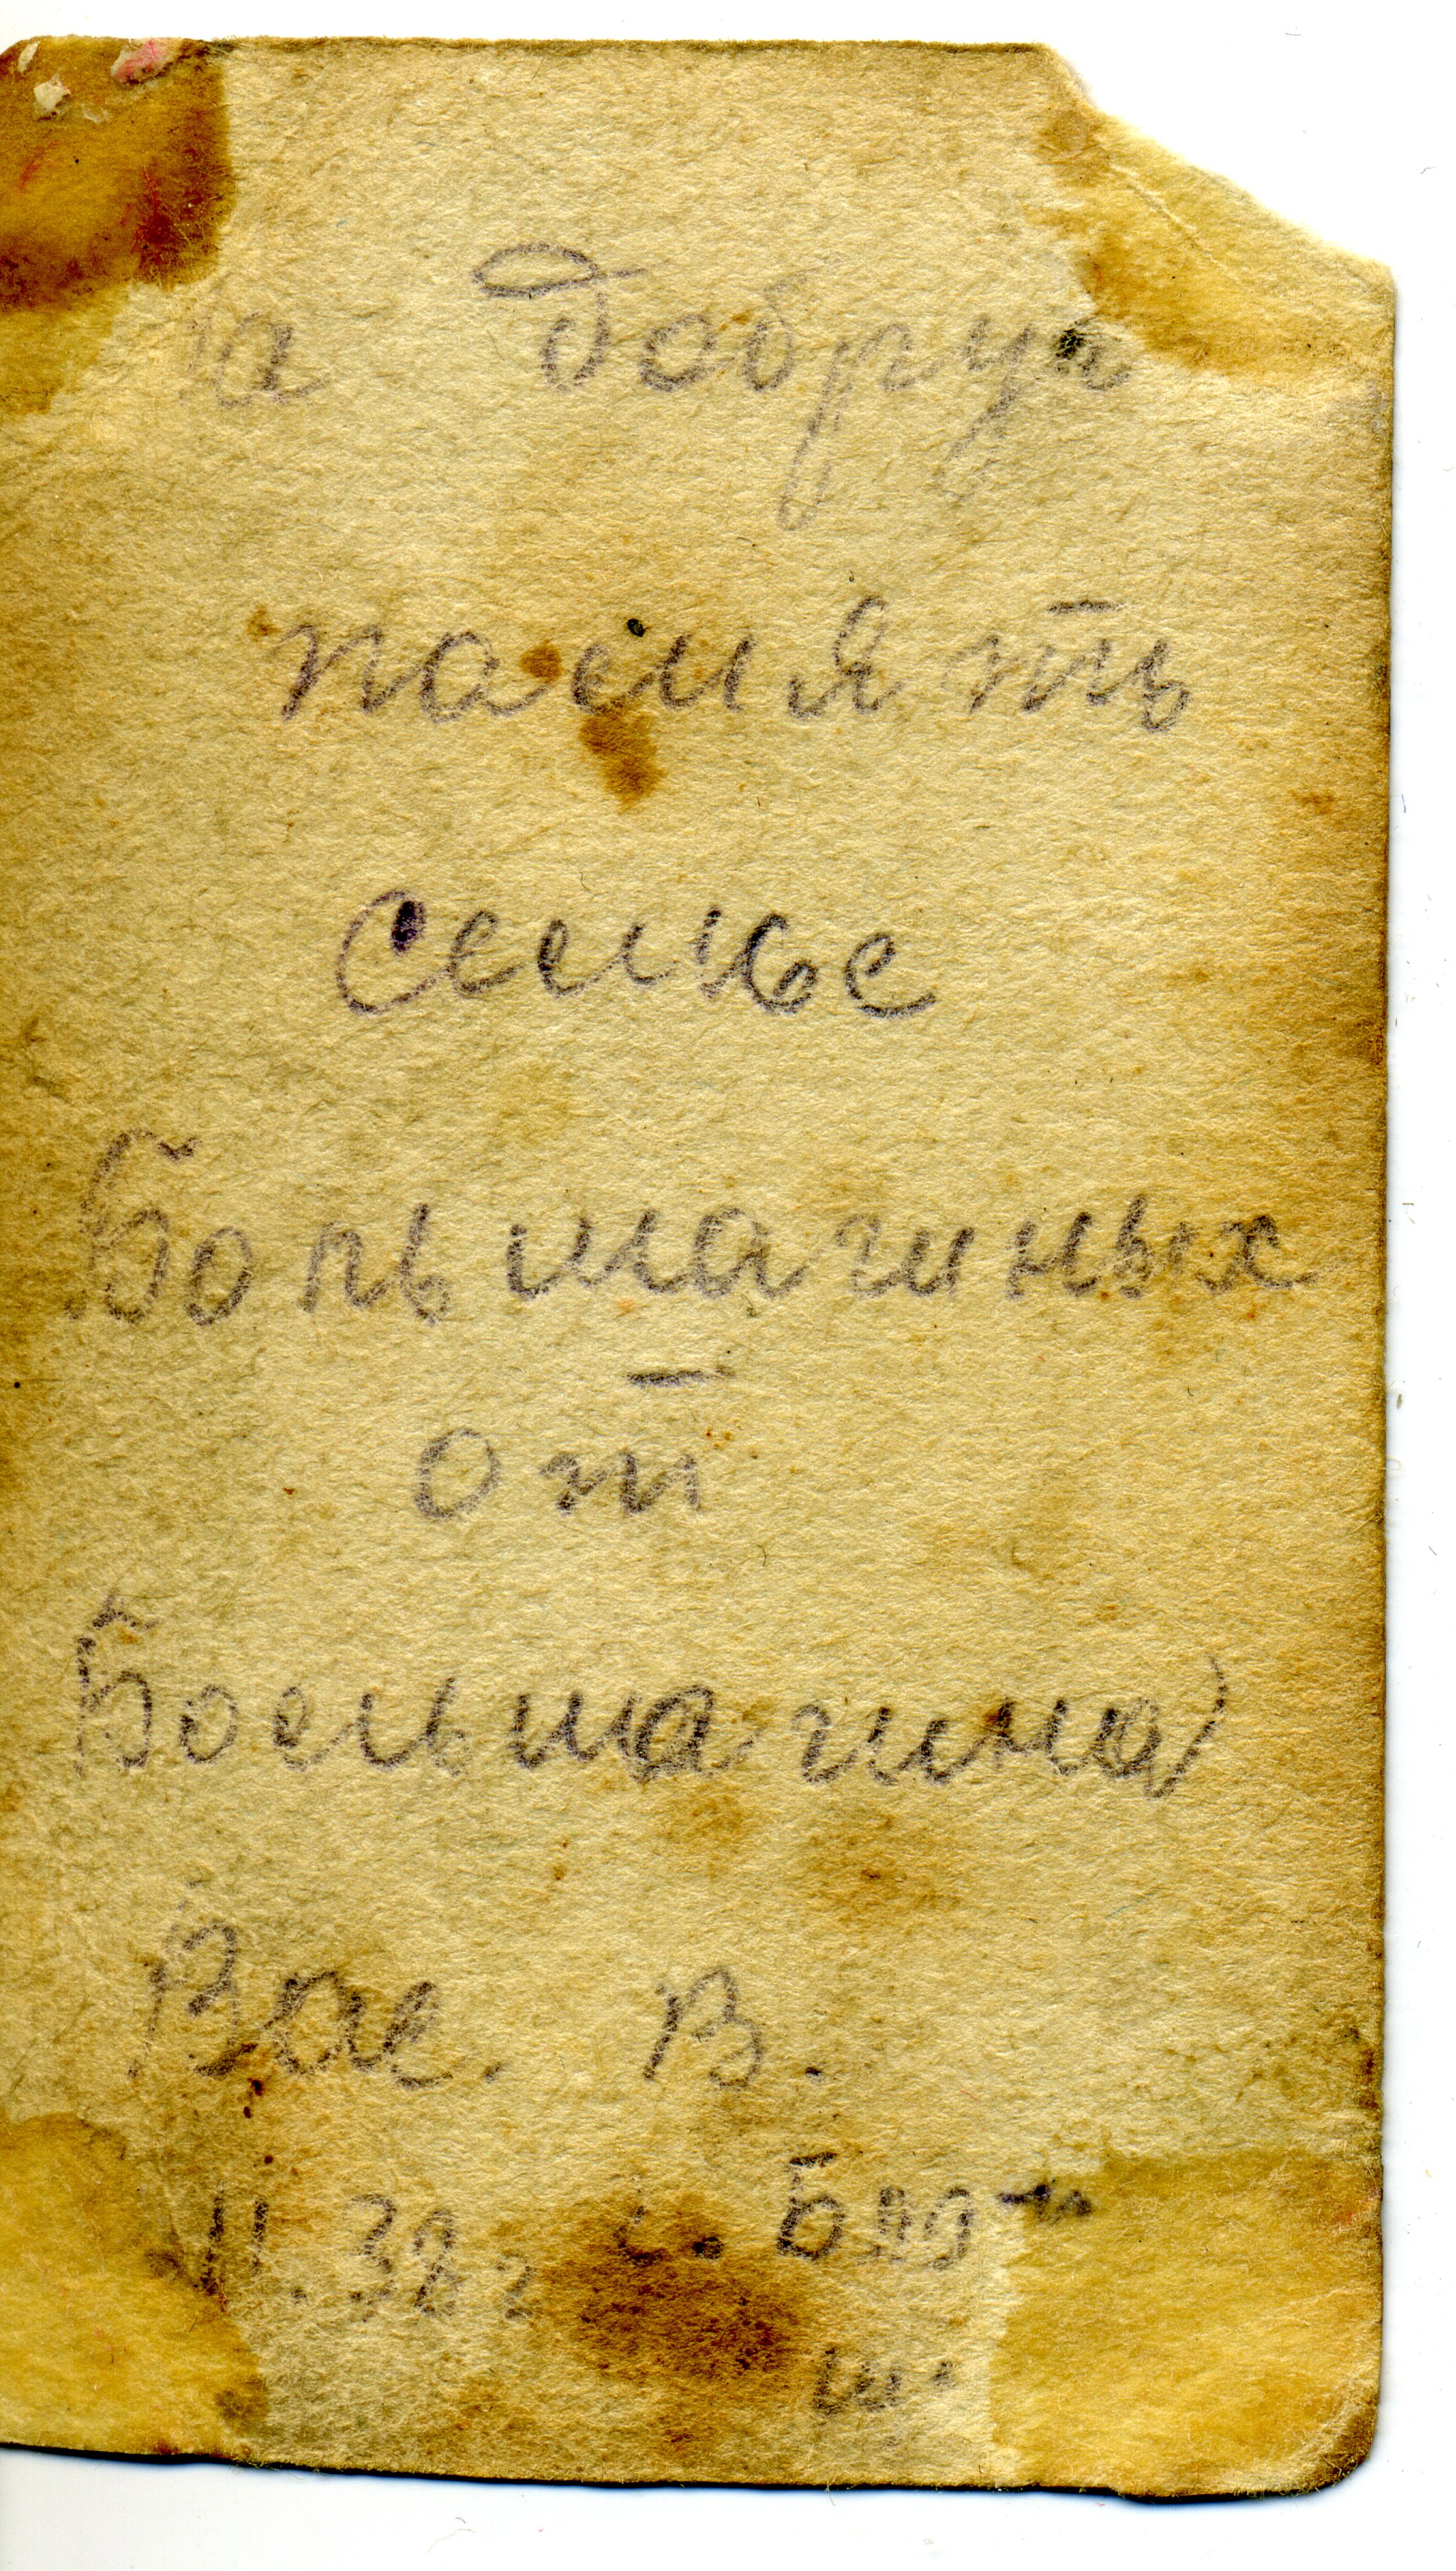 На добрую
память
семье
Большагиных
от
Большагина
Вас. В.
II.32г с.